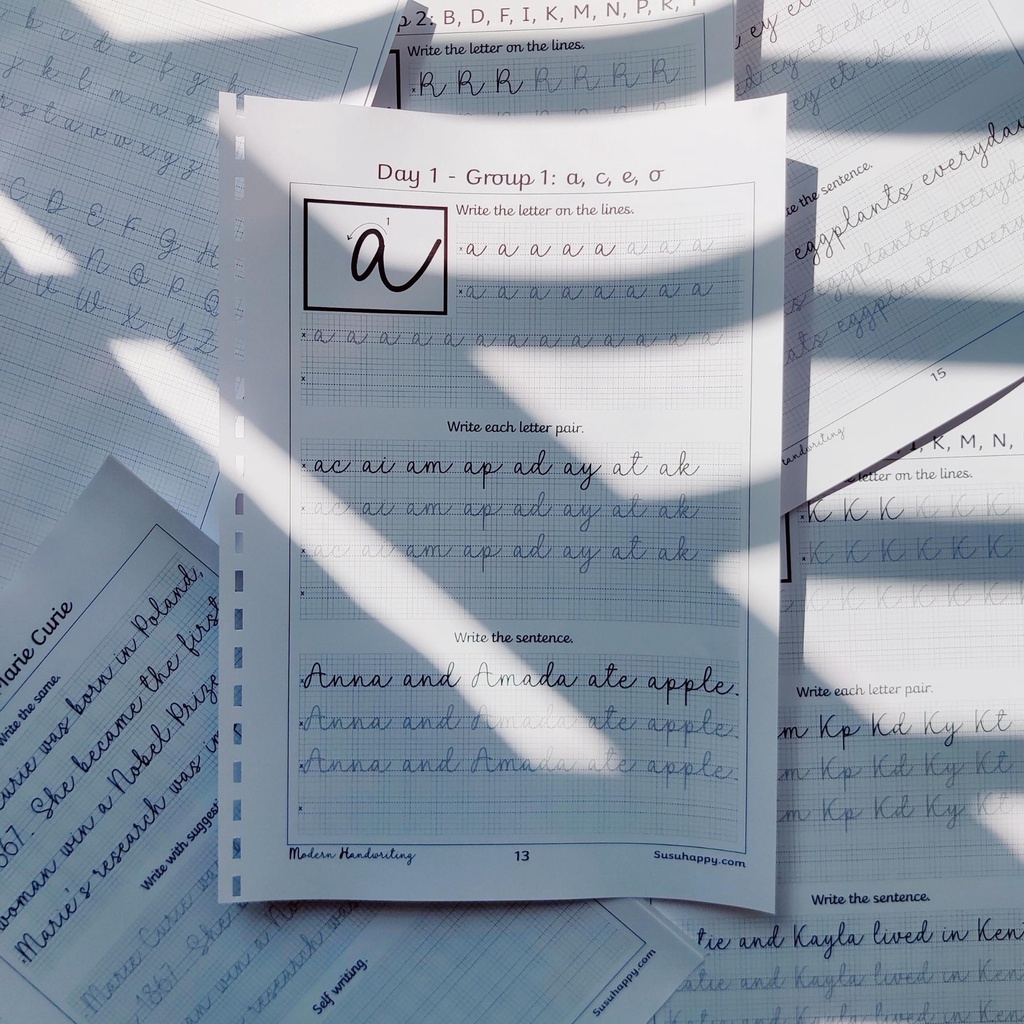 Day 1 - Group 1: a, c, e, o
Write the letter on the lines.
1
a
a a a a a a a a
a a a a a a a a
a a a a a a a a a a a a a
Write each letter pair.
ac ai am ap ad ay at ak
ac ai am ap ad ay at ak
ac ai am ap ad ay at ak
Write the sentence.
Anna and Amada ate apple.
Anna and Amada ate apple.
Anna and Amada ate apple.
Modern Handwriting 13 Susuhappy.com
b c d e f g h
j k l m n o
r s t u v w x y z
C D E F G H
M N O P Q
U V W X Y Z
2: B, D, F, I, K, M, N, P, R,
Write the letter on the lines.
R R R R R R R R
ey et ek eg
the sentence.
eggplants everyday
eggplants everyd
eats eggplants every
15
Handwriting
K, M, N,
letter on the lines.
K K K K K K
K K K K K K
Write each letter pair.
m Kp Kd Ky Kt
m Kp Kd Ky Kt
m Kp Kd Ky Kt
Write the sentence.
tie and Kayla lived in Ken
Katie and Kayla lived in Ken
Katie and Kayla lived in Ken
Marie Curie
Write the same.
Curie was born in Poland,
867. She became the first
woman win a Nobel Prize
Marie's research was in
Write with suggest
Marie Curie wa
1867. She
woman win a No
research wa
Self writing.
Susuhappy.com